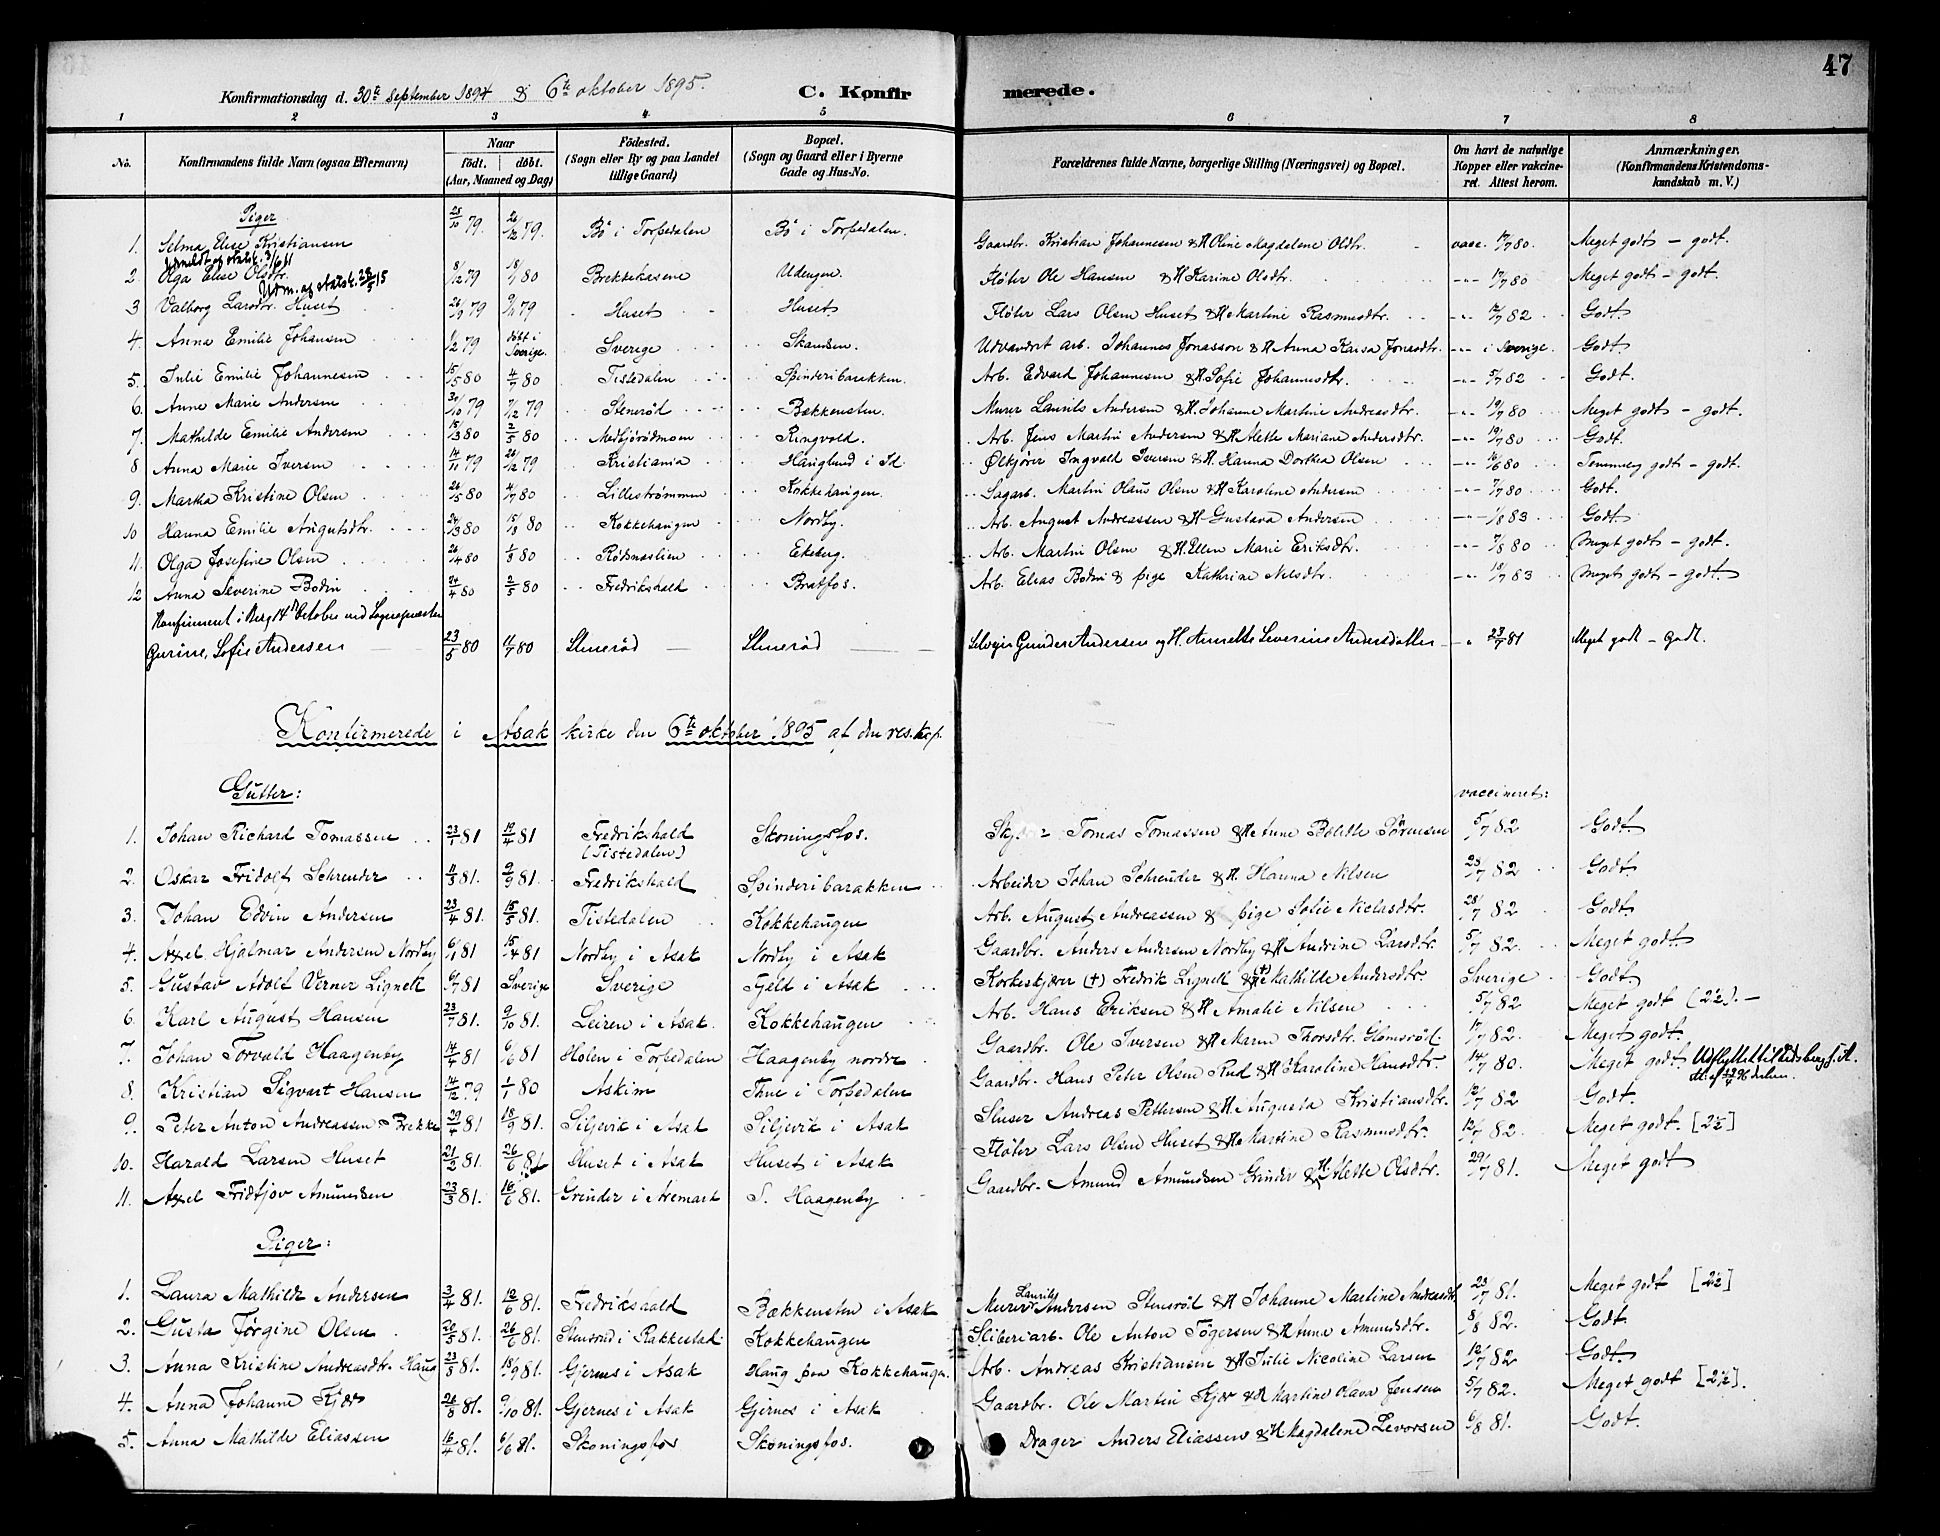 47
Konfirmationsdag d. 30te September 1894 & 6te oktober 1895. C. Konfirmerede.
1 2 3 4 5 6 7 8
No. Konfirmandens fulde Navn (ogsaa Efternavn) Naar født. døbt. (Aar, Maaned og Dag) Födested. (Sogn eller By og paa Landet tillige Gaard) Bopæl. (Sogn og Gaard eller i Byerne Gade og Hus-No. Forældrenes fulde Navne, borgerlige Stilling (Næringsvei) og Bopæl. Om havt de naturlige Kopper eller vakcineret. Attest herom. Anmærkninger. (Konfirmandens Kristendomskundskab m. V.)
Piger
1. Selma Elise Kristiansen 28/10 79. 26/12 79. Bö i Torpedalen. Bö i Torpedalen. Gaardbr. Kristian Johannesen & H Oline Magdalene Oldtr. vacc. 17/7 80. Meget godt – godt.
Udmeldt af statsk. 3/6 11
2 Olga Elise Olsdtr. 8/12 79 18/1 80 Brekkekasene Udengen. Fløter Ole Hansen & H Karine Olsdtr. -"- 17/7 80 Meget godt – godt.
Udm. af statsk. 28/5 15
3 Valborg Larsdtr. Huset 26/9 79 9/11 79 Huset Huset. Fløter Lars Olsen Huset & H Martine Rasmusdtr. -"- 12/7 82 Godt.
4. Anna Emilie Johansen 6/2 79 döbt i Sverige. Sverige Skandsen. Udvandret arb. Johannes Jonasson & H Anna Kaisa Jonasdtr. -"- i Sverige. Godt.
5. Julie Emilie Johannesen 15/5 80 4/7 80 Tistedalen Spinderibarakken. Arb. Edvard Johannesen & H Sofie Johannesdtr. -"- 5/7 82 Godt.
6. Anne Marie Andersen 30/10 79 7/12 79 Stenerød Bækkensten. Murer Laurits Andersen & H. Johanne Martine Andreasdtr. -"- 19/7 80 Meget godt – godt.
7. Mathilde Emilie Andersen 15/3 80 2/5 80 Ringvold. Arb. Jens Martin Andersen & H Mette Mariane Andersdtr. -"- 19/7 80 Godt.
8 Anna Marie Iversen 14/11 79 26/12 79 Kristiania Hauglund i Id. Ølkjörer Ingvald Iversen & H. Hanna Dorthea Olsen -"- 16/6 80 Temmelig godt – godt.
9. Martha Kristine Olsen 26/5 80 4/7 80 Lillestrømmen Kokkehaugen. Sagarb. Martin Olaus Olsen & H Karoline Andersen -"- 7/7 80 Godt.
10 Hanna Emilie Augustdtr. 24/3 80 15/8 80 Kokkehaugen Nordby. Arb. August Andreassen & H Gustava Andersen -"- 1/8 83 Godt.
11. Olga Josefine Olsen 26/4 80 1/8 80 Rödsnæslien Ekeberg. Arb. Martin Olsen & H. Ellen Marie Eriksdtr. -"- 7/8 80 Meget godt – godt.
12 Anna Severine Bodin 24/4 80 2/5 80 Fredrikshald Bratfos. Arb. Elias Bodin & pige Kathrine Nilsdtr. -"- 18/7 83 Meget godt – godt.
Konfirmeret i Berg 14de October ved Sognepræsten
Gurine, Sofie Andersen 23/5 80 11/7 80 Stenerød Stenerød Selveier Gunder Andersen og H. Annette Severine Andersdatter -"- 23/7 81 Meget godt – godt.
Konfirmerede i Asak kirke den 6te oktober 1895 af den res. kap.
Gutter: vaccineret:
1. Johan Richard Tomassen 23/1 81 19/4 81 Fredrikshald (Tistedalen) Skoningsfos. Tomas Tomassen & H Anne Bolette Sørensen 5/7 82 Godt.
2. Oskar Fridolf Schreuder 11/3 81. 9/9 81. Fredrikshald Spinderibarakken Arbeider Johan Schreuder & H. Hanna Nilsen 28/7 82 Godt.
3. Johan Edvin Andersen 23/4 81. 15/5 81. Tistedalen Kokkehaugen Arb. August Andreassen & pige Sofie Niclasdtr. 28/7 82 Godt
4. Axel Hjalmar Andersen Nordby 6/1 81 15/4 81 Nordby i Asak Nordby i Asak Gaardbr. Anders Andersen Nordby & H Andrine Larsdtr. 5/7 82. Meget godt
5. Gustav Adolf Verner Lignell 6/7 81 Sverige Sverige Fjeld i Asak Korkeskjærer (+) Fredrik Lignell & H (+) Mathilde Andersdtr. Sverige Godt.
6. Karl August Hansen 23/7 81. 9/10 81. Leiren i Asak. Kokkehaugen Arb. Hans Eriksen & H Amalie Nilsen 5/7 82 Meget godt (2½). –
7. Johan Torvald Haagenby 14/4 81 6/6 81 Holen i Torpedalen Haagenby nordre Gaardbr. Ole Iversen & H Maren Thorsdtr. Glomsröd. 17/7 82. Meget godt.
8. Kristian Sigvart Hansen 14/12 79 1/1 80 Askim Thue i Torpedalen Gaardbr. Hans Peter Olsen Rud & H Karoline Hansdtr. 14/7 80. Meget godt. Udflyttet til Eidsberg
9. Peter Anton Andreassen Brekke 29/4 81 18/9 81. Siljevik i Asak Siljevik i Asak Sluser Andreas Pettersen & H. Augusta Kristiansdtr. 12/7 82 Godt.
10. Harald Larsen Huset 21/2 81. 26/6 81 Huset i Asak Huset i Asak Fløter Lars Olsen Huset & H Martine Rasmusdtr. 12/7 82. Meget godt. [2½]
11. Axel Fridtjov Amundsen 23/3 81. 16/6 81. Grinder i Aremark S. Haagenby Gaardbr. Amund Amundsen Grinder & H. Mette Olsdtr. 29/7 81. Meget godt
Piger:
1. Laura Mathilde Andersen 3/4 81. 12/6 81. Fredrikshald Bækkensten i Asak Murer Laurits Andersen Stensröd & H Johanne Martine Andreasdtr. 23/7 81. Meget godt [2½]
2. Gusta Jørgine Olsen 20/5 81. 26/6 81. Stensrud i Rakkestad Kokkehaugen Sliberiarb. Ole Anton Tögersen & H Anne Amundsdtr. 8/8 82. Godt.
3. Anna Kristine Andreasdtr. Haug 23/8 81. 18/9 81. Gjernes i Asak Haug paa Kokkehaugen. Arb. Andreas Kristiansen & H Julie Nicoline Larsen 12/7 82 Godt.
4. Anna Johanne Kjær 26/8 81. 9/10 81. Gjernes i Asak Gjernes i Asak Gaardbr. Ole Martin Kjær & H Martine Olava Jensen 5/7 82. Meget godt [2½].
5. Anna Mathilde Eliassen 16/4 81. 6/6 81. Skoningsfos Skoningsfos. Drager Anders Eliassen & H Magdalene Levorsen 6/8 81. Godt.